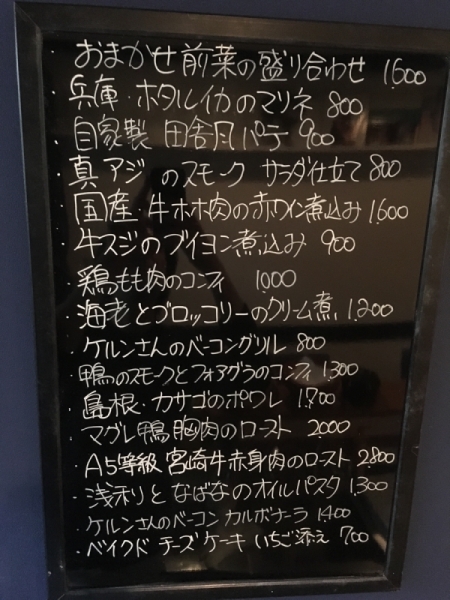 おまかせ前菜の盛り合わせ 1,600
・兵庫・ホタルイカのマリネ 800
・自家製 田舎風パテ 900
・真アジ のスモーク サラダ仕立て 800
・国産・牛ホホ肉の赤ワイン煮込み 1,600
・牛スジのブイヨン煮込み 900
・鶏もも肉のコンフィ 1,000
・海老とブロッコリーのクリーム煮 1,200
・ケルンさんのベーコングリル 800
・鴨のスモークとフォアグラのコンフィ 1,300
・島根・カサゴのポワレ 1,700
・マグレ鴨胸肉のロースト 2,000
・A5等級 宮崎牛赤身肉のロースト 2,800
・浅利と なばなのオイルパスタ 1,300
・ケルンさんのベーコン カルボナーラ 1,400
・ベイクド チーズケーキ いちご添え 700